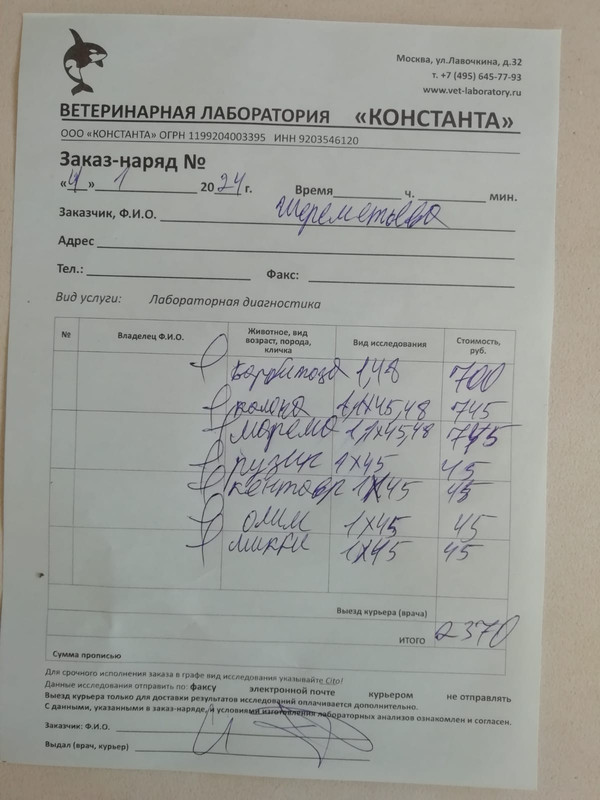 Москва, ул.Лавочкина, д.32
т. +7 (495) 645-77-93
www.vet-laboratory.ru
ВЕТЕРИНАРНАЯ ЛАБОРАТОРИЯ «КОНСТАНТА»
ООО «КОНСТАНТА» ОГРН 1199204003395 ИНН 9203546120
Заказ-наряд №
«4» 1 2024г. Время ч. мин.
Заказчик, Ф.И.О. Шереметьева
Адрес
Тел.: Факс:
Вид услуги: Лабораторная диагностика
№ Владелец Ф.И.О. Животное, вид возраст, порода, кличка Вид исследования Стоимость, руб.
1,48 700
745
745
1x45 45
кентавр 1x45 45
олим 1x45 45
микки 1x45 45
Выезд курьера (врача)
ИТОГО 2370
Сумма прописью
Для срочного исполнения заказа в графе вид исследования указывайте Cito!
Данные исследования отправить по: факсу электронной почте курьером не отправлять
Выезд курьера только для доставки результатов исследований оплачивается дополнительно.
С данными, указанными в заказ-наряде, и условиями изготовления лабораторных анализов ознакомлен и согласен.
Заказчик: Ф.И.О.
Выдал (врач, курьер)